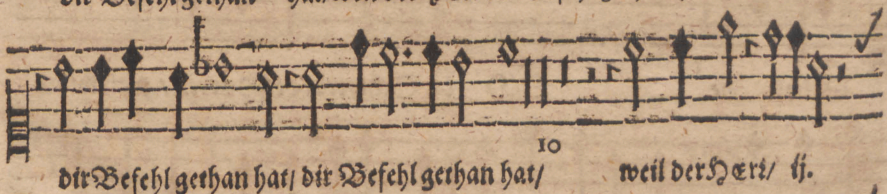 10
dir Befehl gethan hat/ dir Befehl gethan hat/ weil der HErr/ ij.